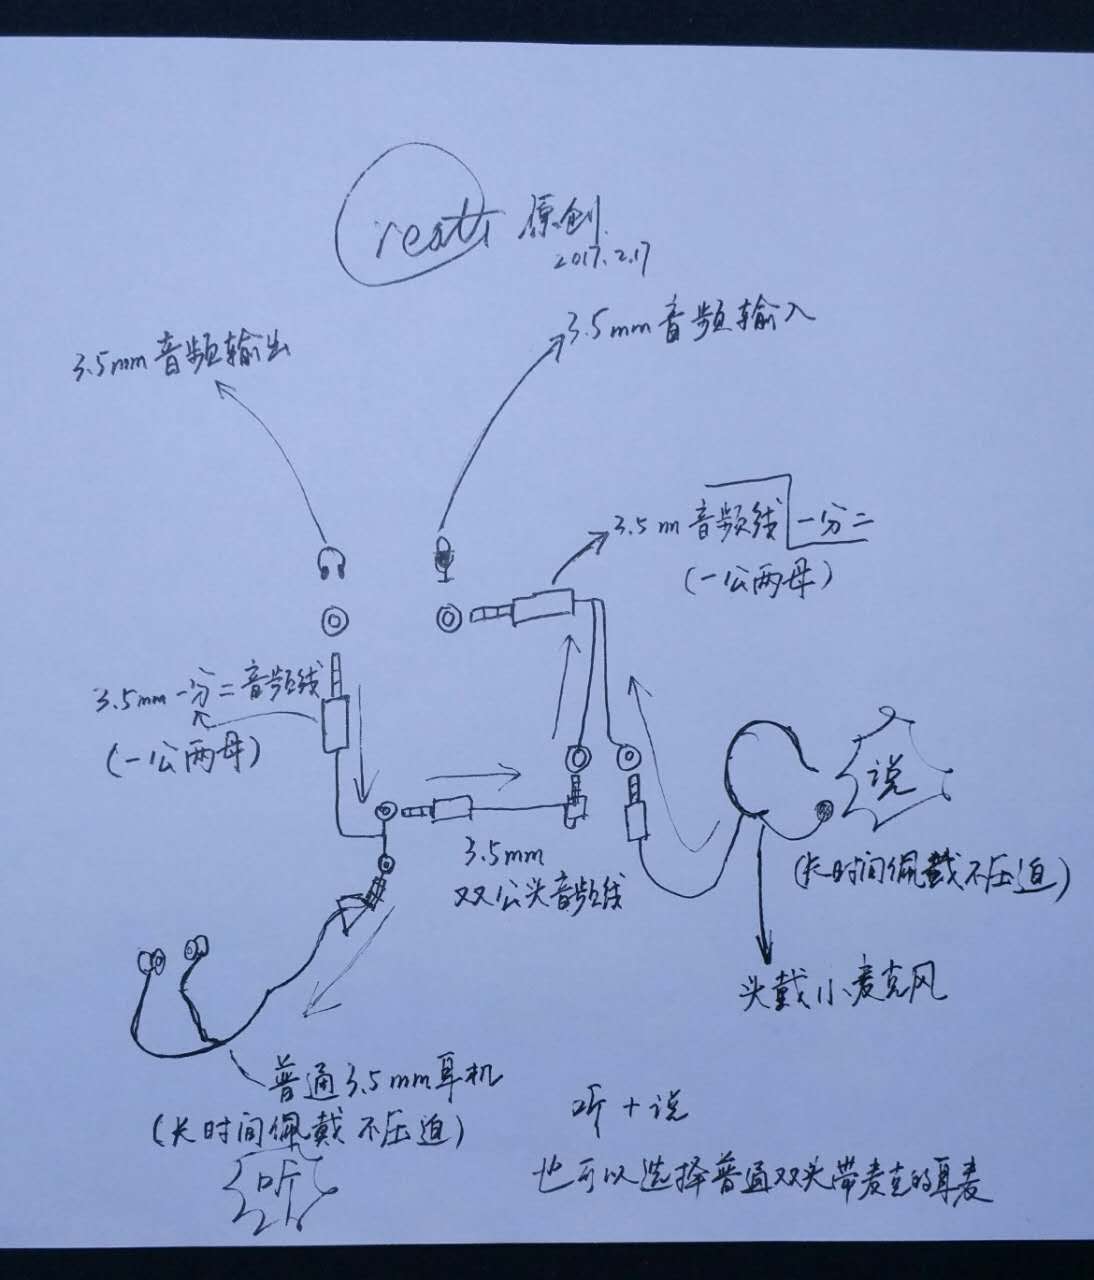 Creatt 原创
2017.2.17
3.5mm 音频输出
3.5mm 音频输入
3.5m 音频线 一分二
(一公两母)
3.5mm 一分二音频线
(一公两母)
说
3.5mm
双公头音频线
(长时间佩戴不压迫)
头戴小麦克风
普通3.5mm耳机
(长时间佩戴不压迫)
听
听+说
也可以选择普通双头带麦克的耳麦